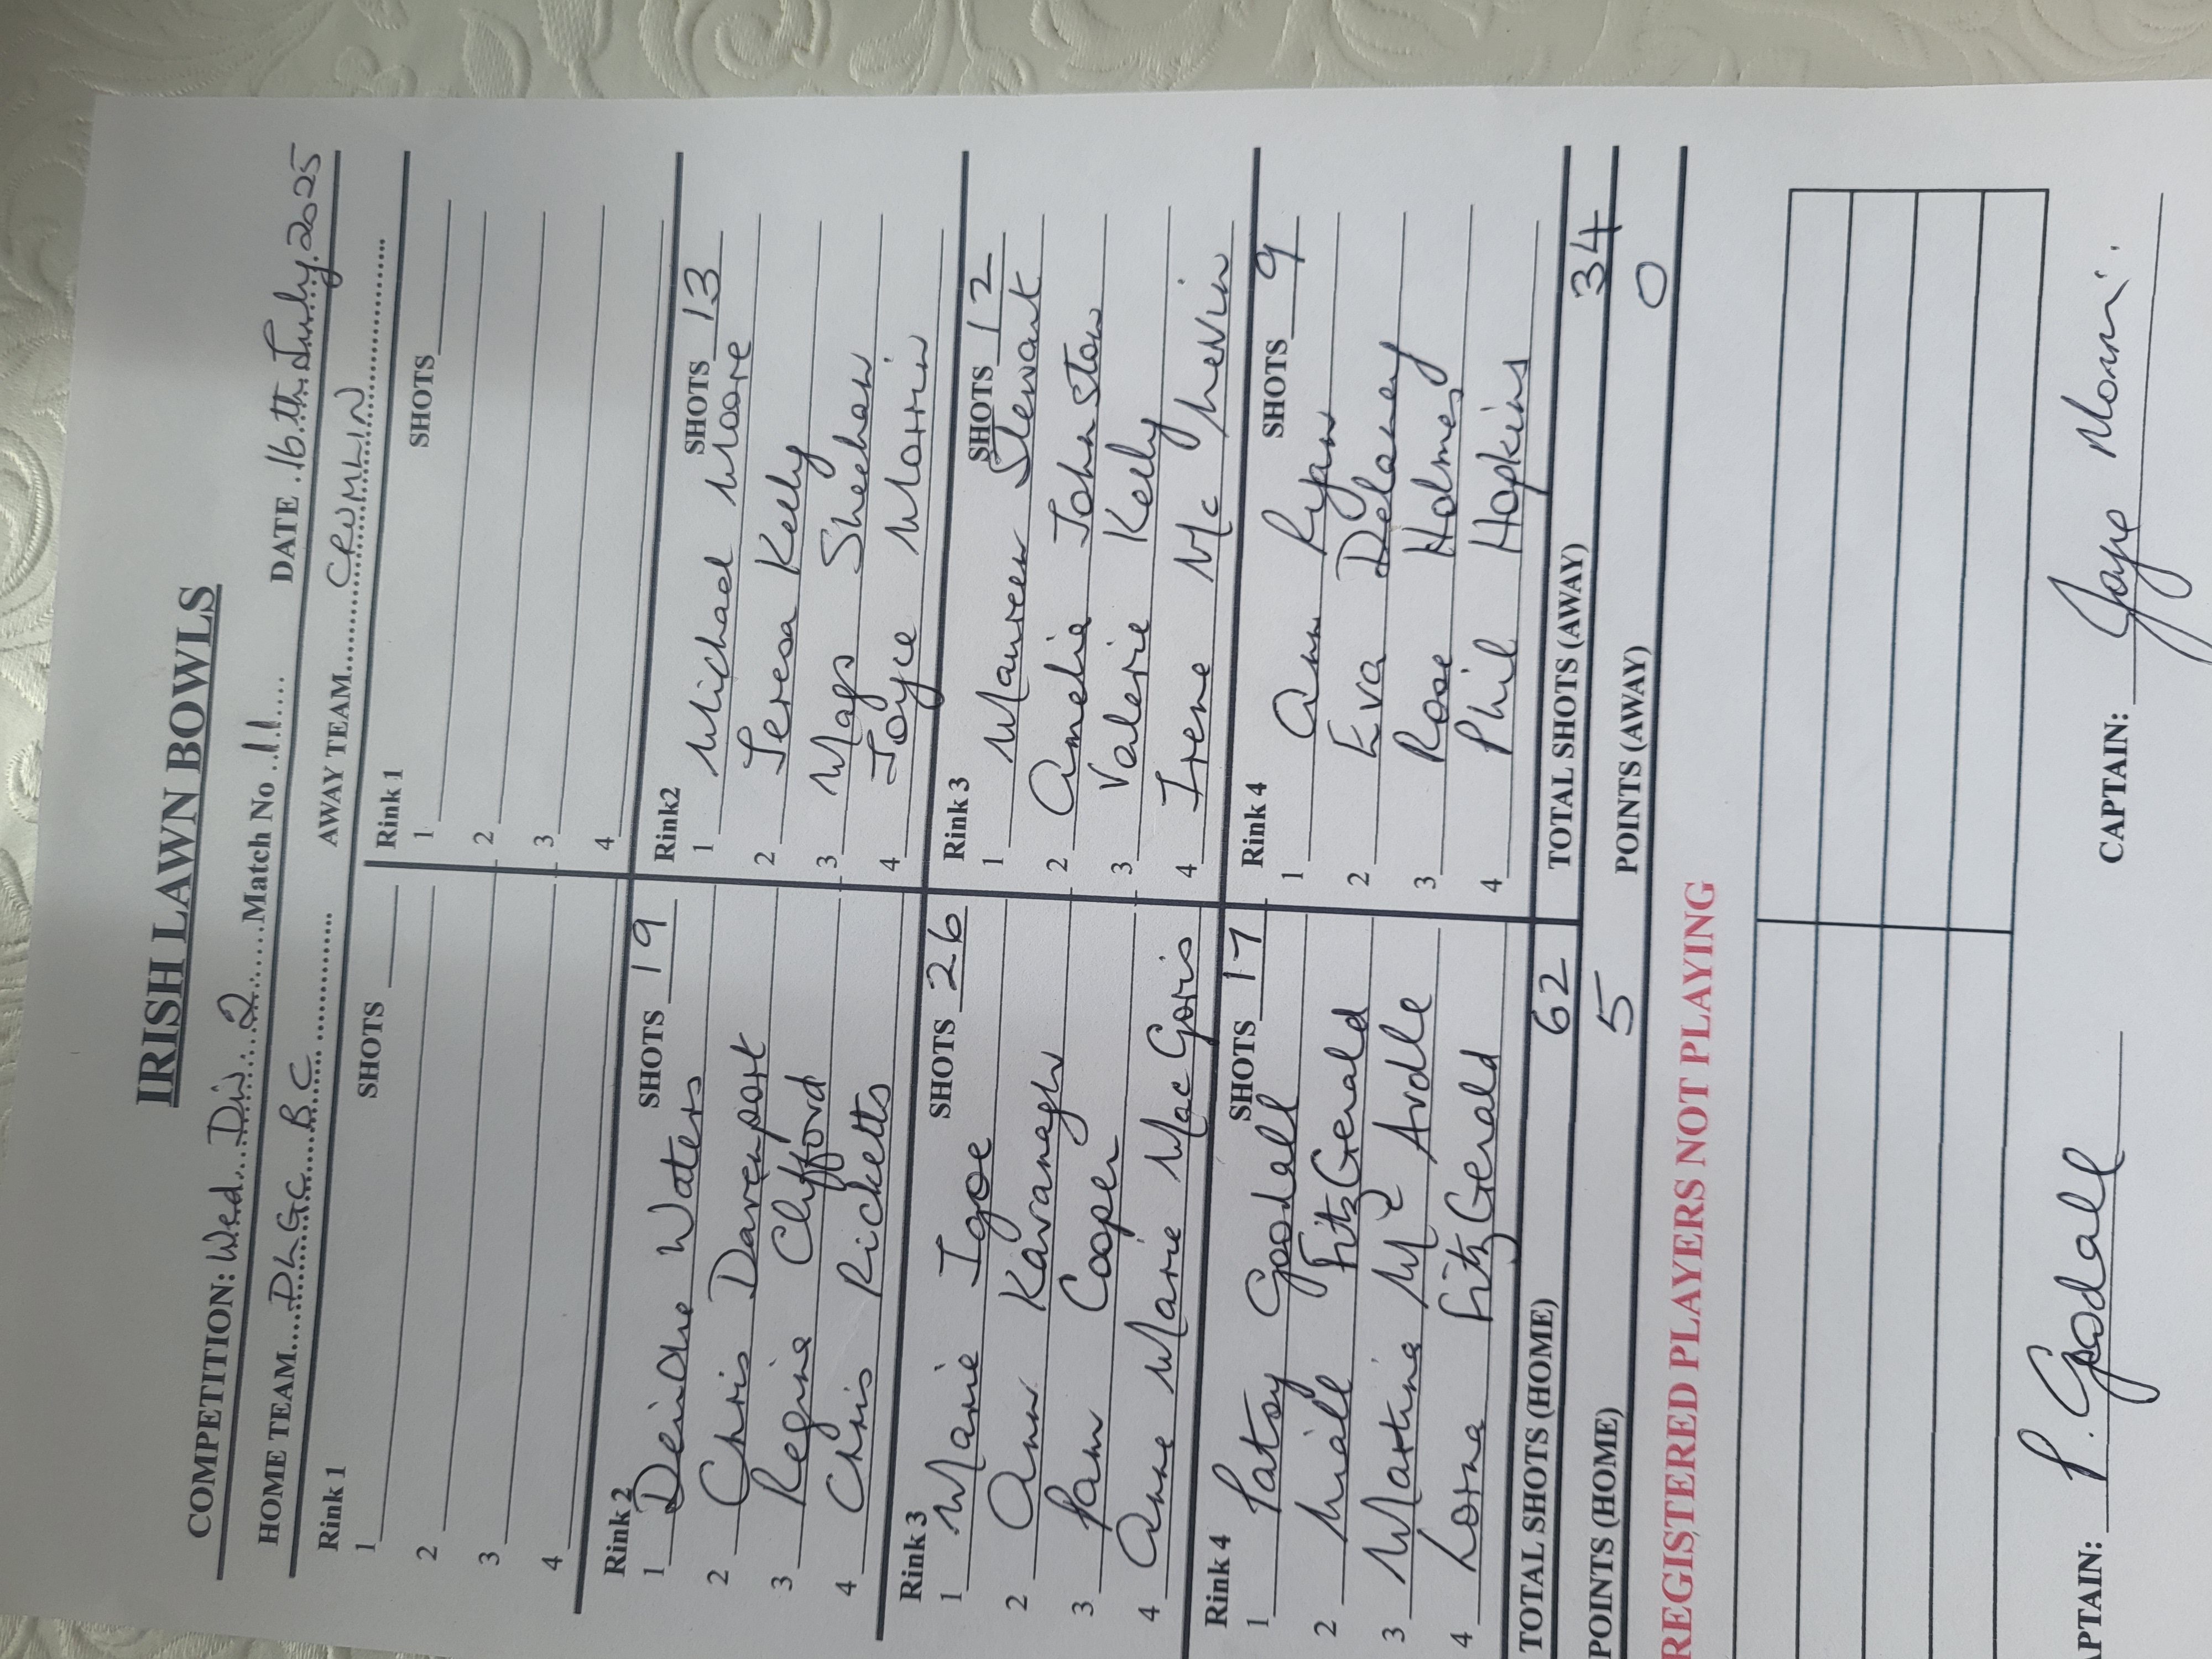 IRISH LAWN BOWLS
COMPETITION: Wed. Div. 2 Match No 11 DATE 16th July. 2025
HOME TEAM D.L.G.C. B.C AWAY TEAM CRUMLIN
Rink 1 SHOTS
1
2
3
4
Rink 1 SHOTS
1
2
3
4
Rink 2 SHOTS 19
1 Deirdre Waters
2 Chris Davenport
3 Regina Clifford
4 Chris Ricketts
Rink2 SHOTS 13
1 Michael Moore
2 Teresa Kelly
3 Mags Sheehan
4 Joyce Morrin
Rink 3 SHOTS 26
1 Marie Igoe
2 Ann Kavanagh
3 Pam Cooper
4 Anne Marie MacGoris
Rink 3 SHOTS 12
1 Maureen Stewart
2 Amelia Johnston
3 Valerie Kelly
4 Irene Mc Inervin
Rink 4 SHOTS 17
1 Patsy Goodall
2 Niall FitzGerald
3 Martina Mc Ardle
4 Lorna FitzGerald
Rink 4 SHOTS 9
1 Ann Ryan
2 Eva Delaney
3 Rose Holmes
4 Phil Hopkins
TOTAL SHOTS (HOME) 62 TOTAL SHOTS (AWAY) 34
POINTS (HOME) 5 POINTS (AWAY) 0
REGISTERED PLAYERS NOT PLAYING
APTAIN: P. Goodall CAPTAIN: Joyce Morrin.